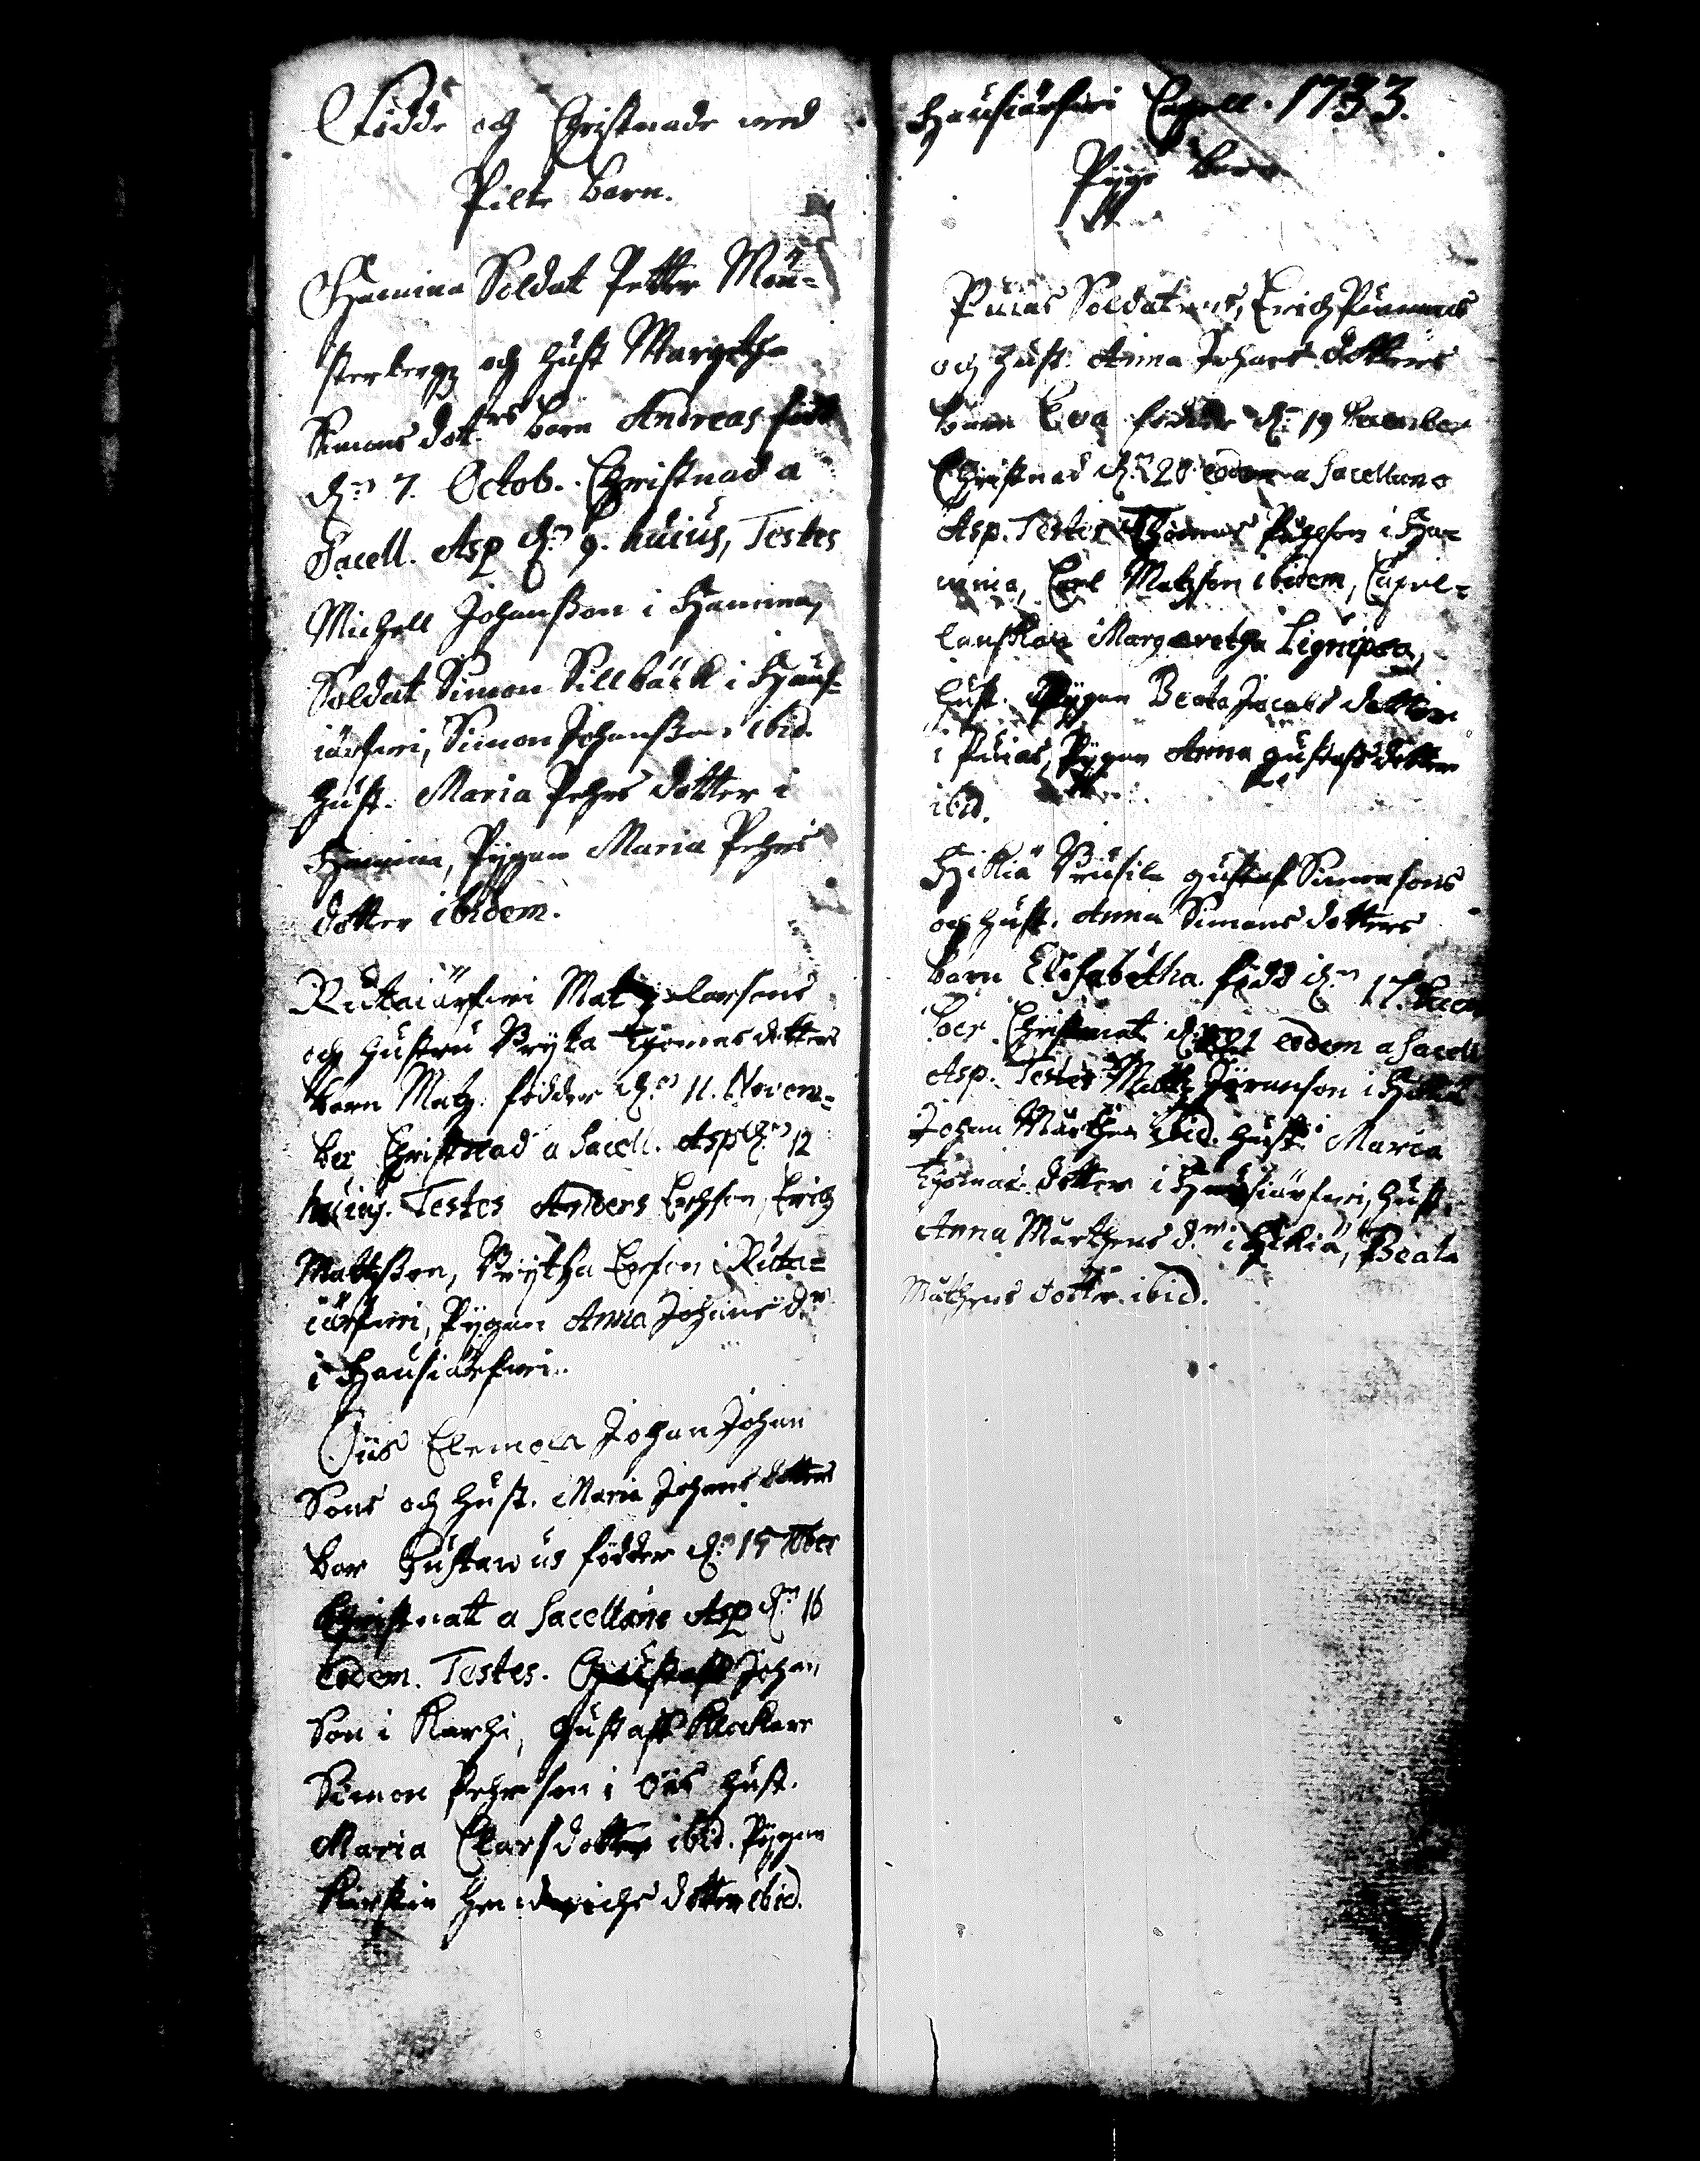 Födde och Christnade wed
Pilte barn.
Hamina Soldat Petter Mön=
sterbergz och hust Margetha
Simons dot:rs barn Andreas född
d:n 7. Octob. Christnad a
Sacell. Asp d:n 9. huius, Testes
Michell Johanßon i Hamina,
Soldat Simon Sillbäck i Haus=
iärfwi, Simon Johanßon ibid.
hust. Maria Pehrs dotter i
Hamina, Pygan Maria Pehrs
dotter ibidem.
Rutaiärfwi Matz Larsons
och hustru Bryta Thomas dotters
barn Matz. födder d:n 11. Novem=
ber Christnad a Sacell. Asp d:n 12
huius. Testes Anders Erchson, Erich
Mattzßon, Brytha Erson i Ruta=
iärfwi, Pygan Anna Johans d:r
i Hausiärfwi.
Oiis Elemola Johan Johan
Sons och hust. Maria Johans dotters
bar Gustawus födder d:n 15 Xber
Christnat a Sacellano Asp d:n 16
eodem. Testes. Gustaff Johan
Son i Karhi, Gustaff Klockare
Simon Pehrson i Oiis hust.
Maria Clarsdotter ibid. Pygan
Kirstin Hendrichs dotter ibid.
Hausiärfwi Capell. 1733.
Pyge barn
Puias Soldatens, Erich
och hust. Anna Johans dotters
barn Eva födder d:n 19 December
Christnad d:n 28 eodem a Sacellano
Asp. Testes Thomas i Ha=
mina, Carl Matzson ibidem, Capel=
lanskan Margaretha Lignipea,
hust. Pygan Beata Jacobs dotter
i Puias, Pygan Anna gustafs dotter
ibid.
Hikiä Prusila gustaf Simonsons
och hust. Anna Simons dotters
barn Elisabetha. född d:n 17. Decem
ber Christnat d:n 21 eodem a Sacell
Asp. Testes Mattz Jöranson i Hikiä
Johan Marthen ibid. hust. Maria
Thomas dotter i Hausiärfwi, hust.
Anna Marthens d:r i Hikiä, Beata
Mathens dotter. ibid.